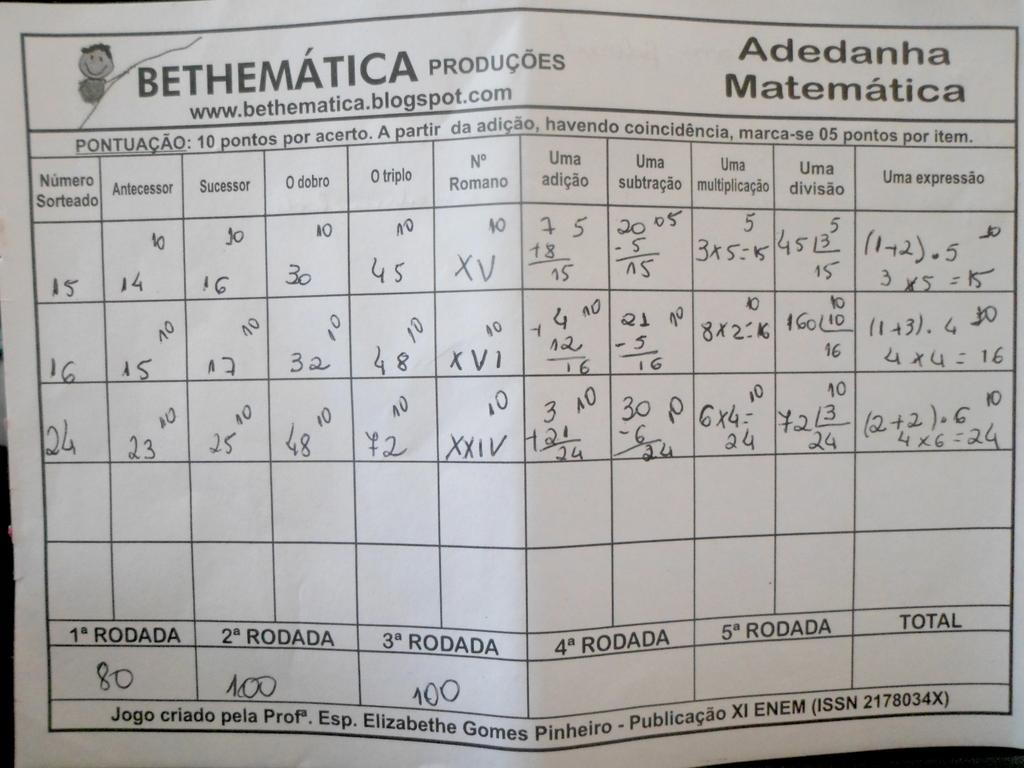 BETHEMÁTICA PRODUÇÕES
www.bethematica.blogspot.com
Adedanha
Matemática
PONTUAÇÃO: 10 pontos por acerto. A partir da adição, havendo coincidência, marca-se 05 pontos por item.
Número Sorteado
Antecessor
Sucessor
O dobro
O triplo
Nº Romano
Uma adição
Uma subtração
Uma multiplicação
Uma divisão
Uma expressão
15
14 10
16 10
30 10
45 10
XV 10
7 5
+8
15
20 05
-5
15
5
3x5=15
5
45 3
15
(1+2).5 10
3x5=15
16
15 10
17 10
32 10
48 10
XVI 10
+ 4 10
12
16
21 10
-5
16
10
8x2=16
10
160 10
16
(1+3).4 10
4x4=16
24
23 10
25 10
48 10
72 10
XXIV 10
3 10
+21
24
30
-6
24
6x4= 10
24
10
72 3
24
(2+2).6 10
4x6=24
1ª RODADA 2ª RODADA 3ª RODADA 4ª RODADA 5ª RODADA TOTAL
80 100 100
Jogo criado pela Profª. Esp. Elizabethe Gomes Pinheiro - Publicação XI ENEM (ISSN 2178034X)